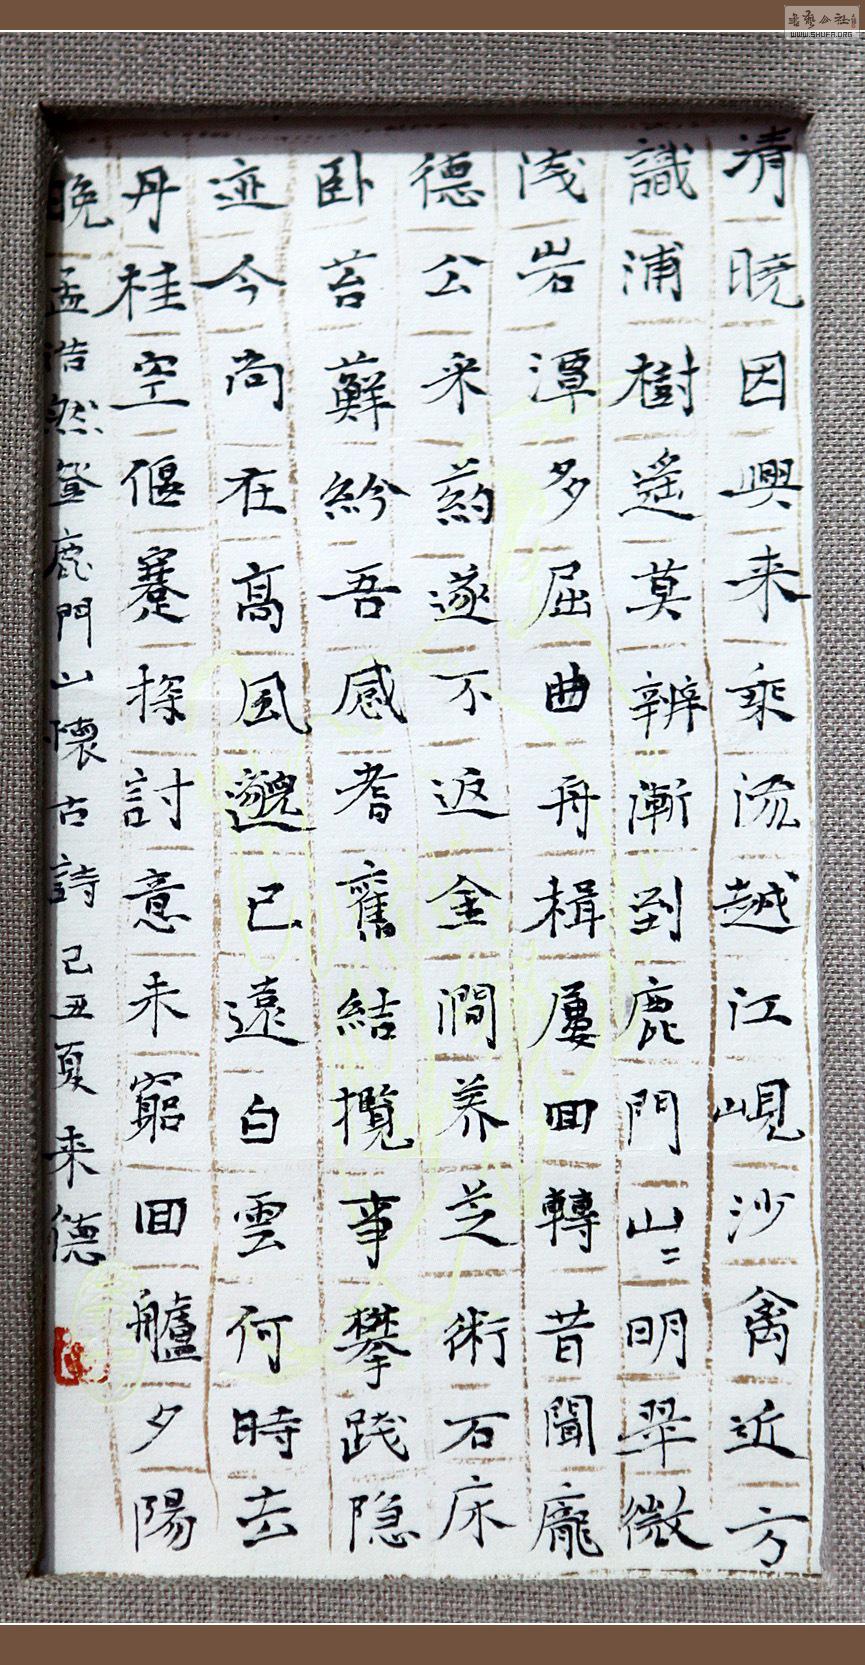 清晓因興来乘流越江峴沙禽近方
識浦樹遙莫辨漸到鹿門山〻明翠微
浅岩潭多屈曲舟楫屢回轉昔聞龐
德公采葯遂不返金澗养芝術石床
卧苔蘚紛吾感耆舊結攬事攀践隐
迹今尚在高風邈已遠白雲何時去
丹桂空偃蹇探討意未窮回艫夕陽
晚 孟浩然登鹿門山懷古詩 己丑夏 来德
WWW.SHUFA.ORG